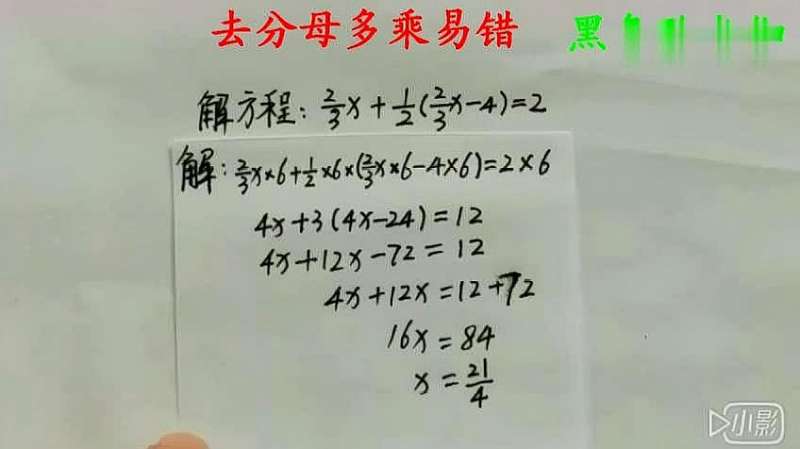 去分母多乘易错 黑
解方程: 2/3x+1/2(2/3x-4)=2
解: 2/3x×6+1/2×6×(2/3x×6-4×6)=2×6
4x+3(4x-24)=12
4x+12x-72=12
4x+12x=12+72
16x=84
x=21/4
小影